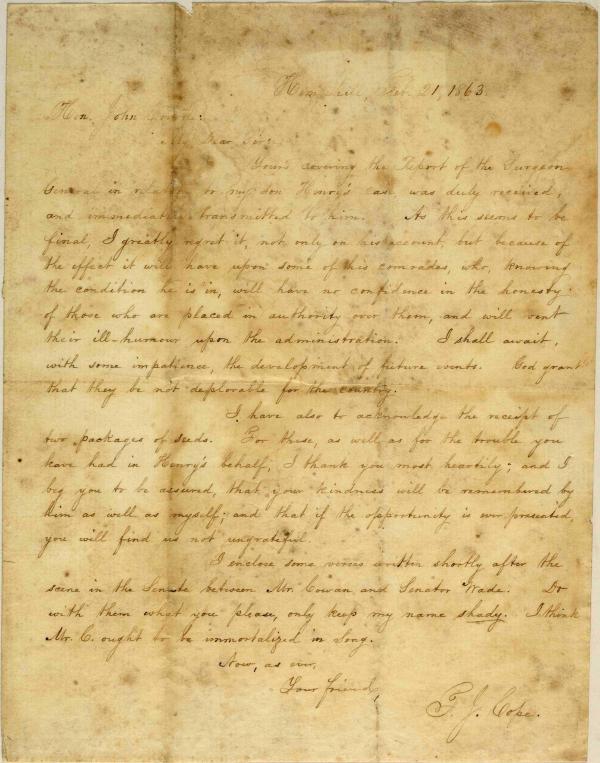 Feb. 21, 1863.
Hon. John
My Dear Sir:
Yours covering the Report of the Surgeon
General in relation to my son Henry's case, was duly received,
and immediately transmitted to him. As this seems to be
final, I greatly regret it, not only on his account, but because of
the effect it will have upon some of his comrades, who, knowing
the condition he is in, will have no confidence in the honesty
of those who are placed in authority over them, and will vent
their ill-humour upon the administration. I shall await,
with some impatience, the development of future events. God grant
that they be not deplorable for the country.
I have also to acknowledge the receipt of
two packages of seeds. For these, as well as for the trouble you
have had in Henry's behalf, I thank you most heartily; and I
beg you to be assured, that your kindness will be remembered by
him as well as myself; and that if the opportunity is ever presented,
you will find us not ungrateful.
I enclose some verses written shortly after the
scene in the Senate between Mr. Cowan and Senator Wade. Do
with them what you please, only keep my name shady. I think
Mr. C. ought to be immortalized in song.
Now, as ever,
Your friend,
T. J. Cope.